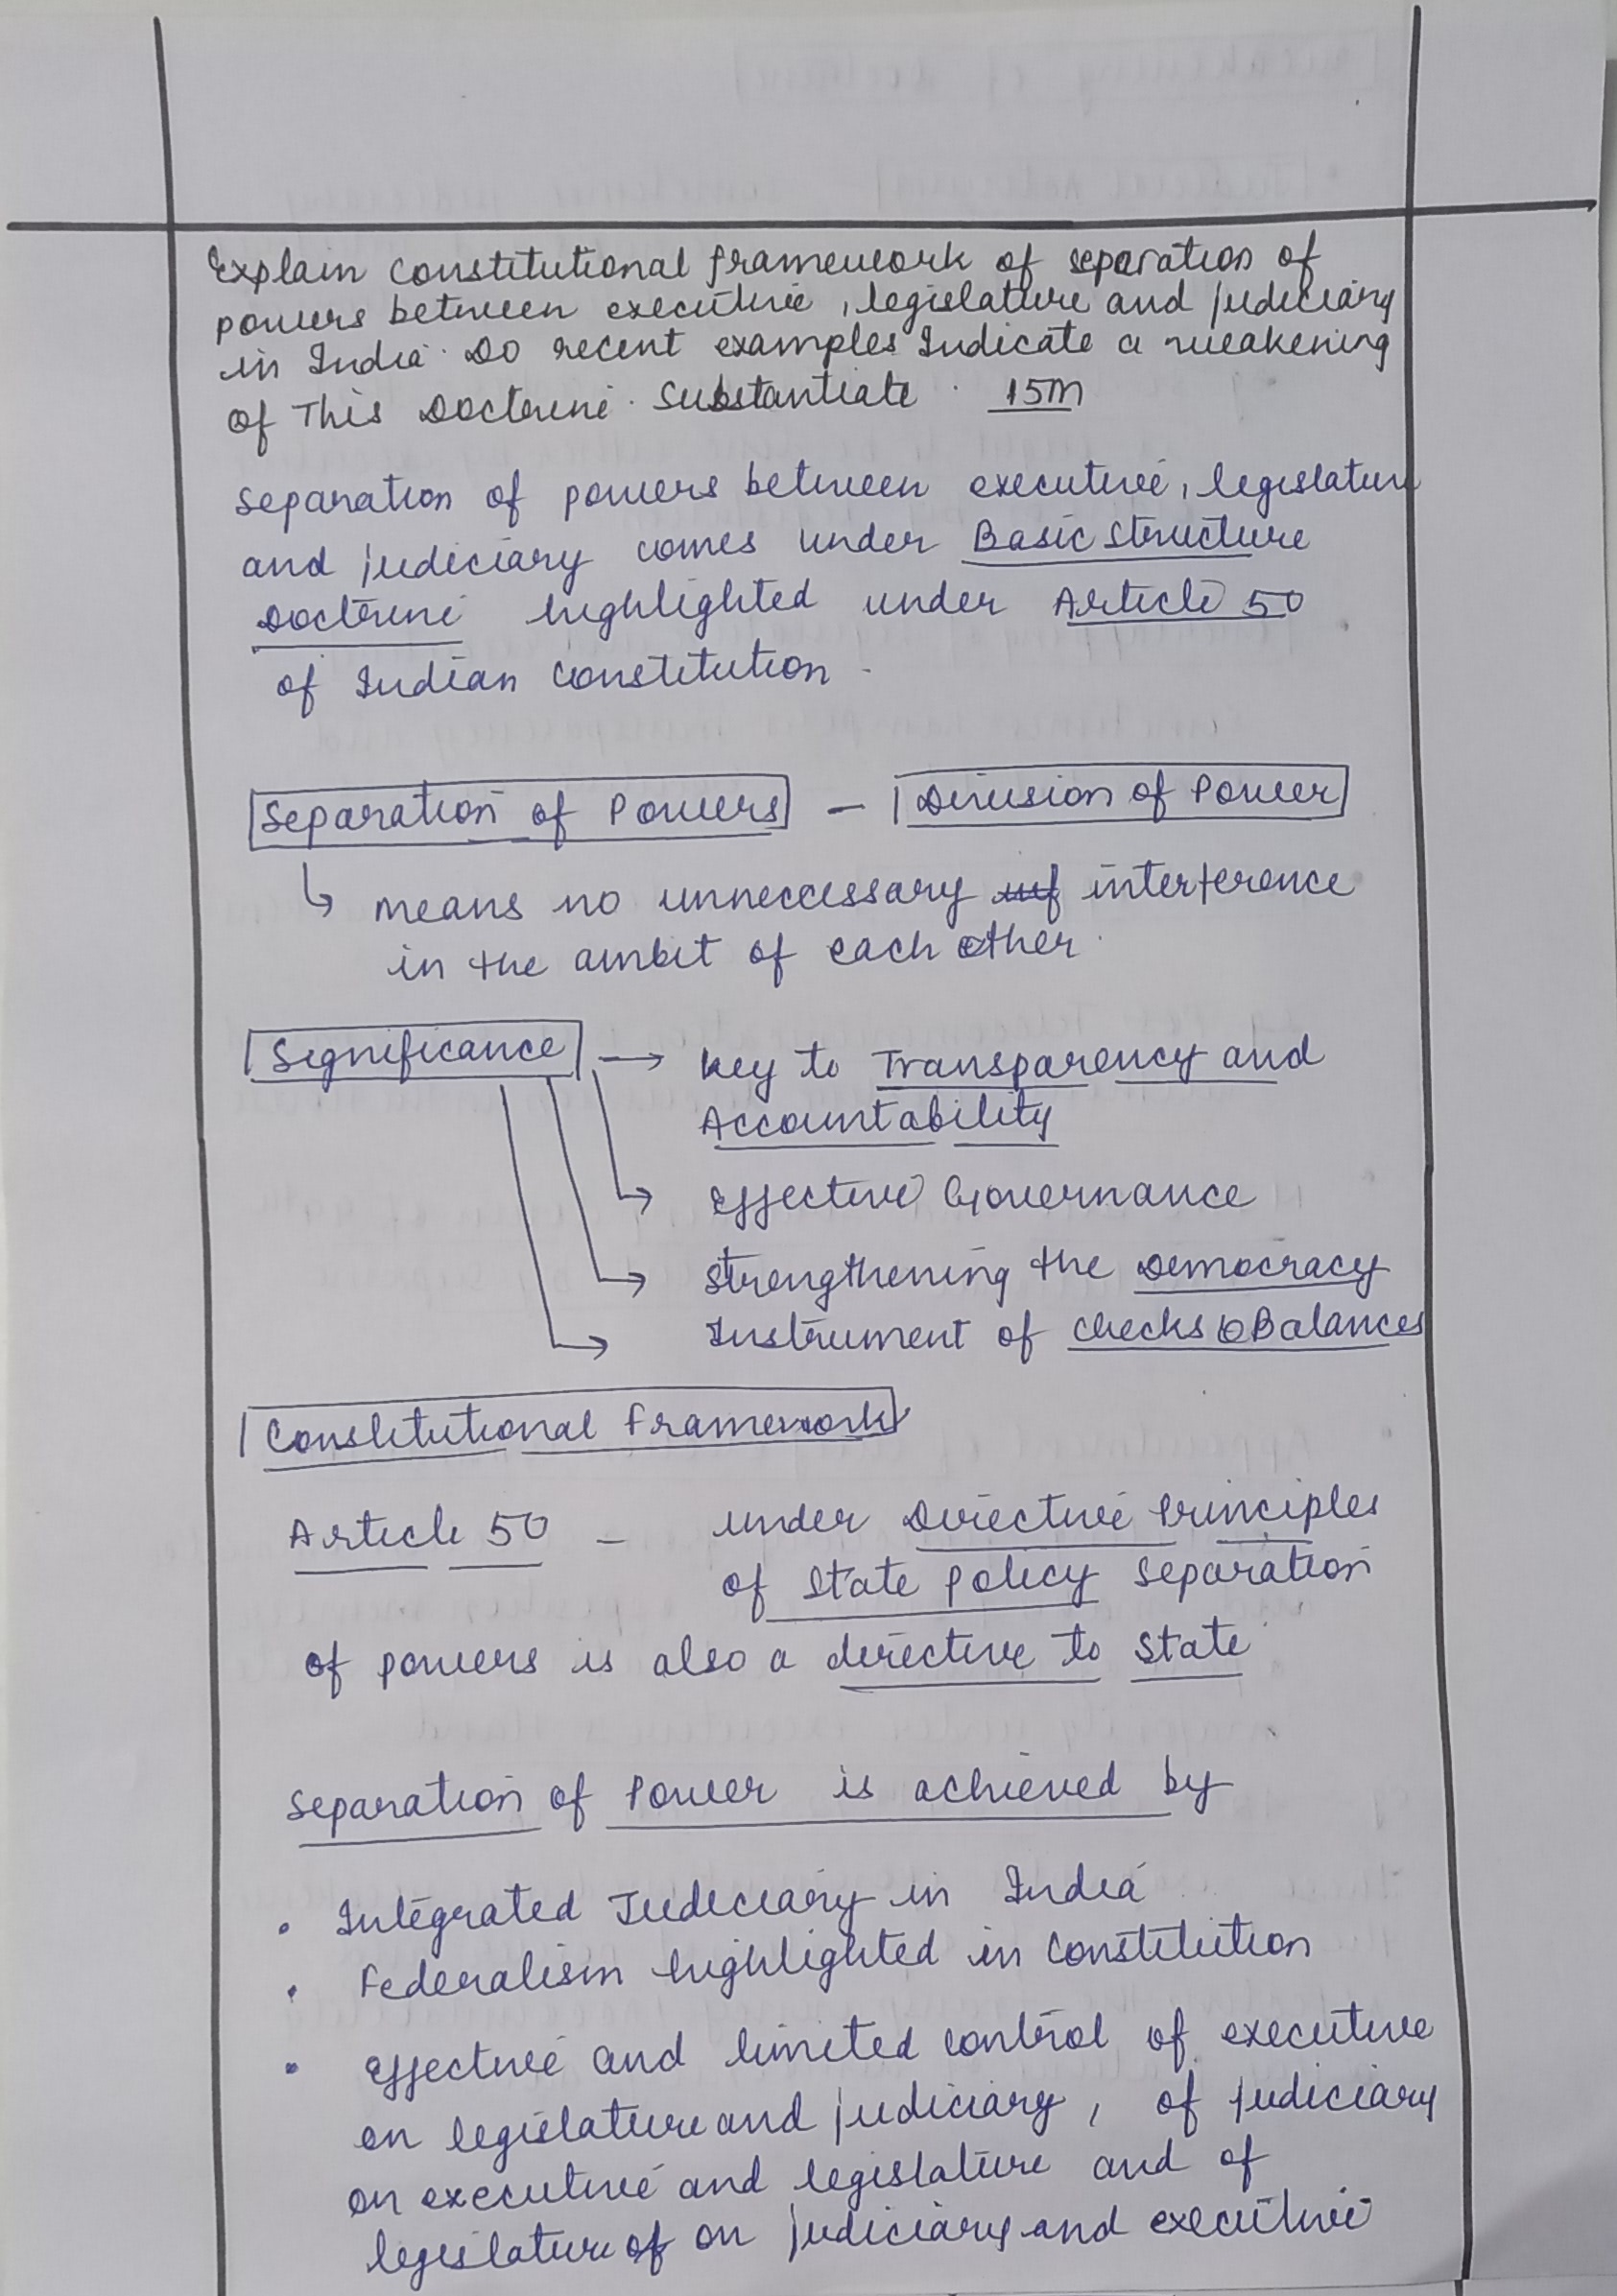 Explain constitutional framework of separation of
powers between executive, legislature and judiciary
in India. Do recent examples Indicate a weakening
of This Doctrine. Substantiate. 15m
Separation of powers between executive, legislature
and judiciary comes under Basic Structure
Doctrine highlighted under Article 50
of Indian Constitution.
Separation of Powers - Division of Power
↳ means no unneccessary interference
in the ambit of each other.
Significance → key to Transparency and
Accountability
→ Effective Governance
→ Strengthening the Democracy
→ Instrument of checks & Balances
Constitutional Framework
Article 50 - under Directive Principles
of State Policy separation
of powers is also a directive to State
Separation of Power is achieved by
• Integrated Judiciary in India
• Federalism highlighted in Constitution
• Effective and limited control of executive
on legislature and judiciary, of judiciary
on executive and legislature and of
legislature on judiciary and executive